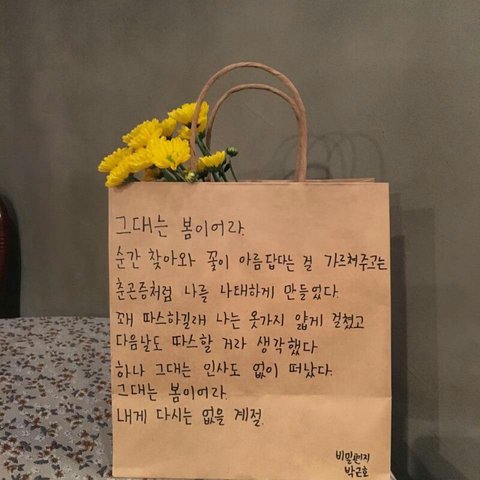 그대는 봄이어라.
순간 찾아와 꽃이 아름답다는 걸 가르쳐주고는
춘곤증처럼 나를 나태하게 만들었다.
꽤 따스하길래 나는 옷가지 얇게 걸쳤고
다음날도 따스할 거라 생각했다
하나 그대는 인사도 없이 떠났다.
그대는 봄이어라.
내게 다시는 없을 계절.
비밀편지
박근호